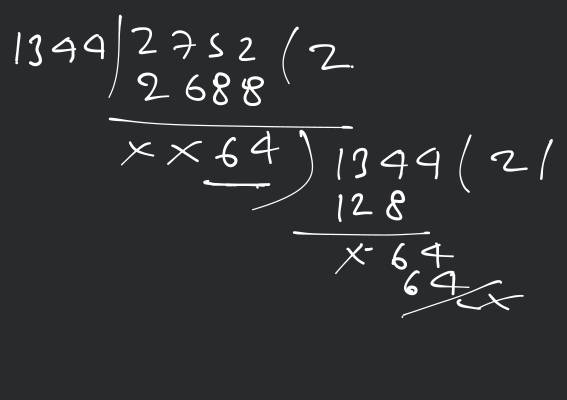 1344) 2752 ( 2
2688
××64) 1344 ( 21
128
×-64
64
×